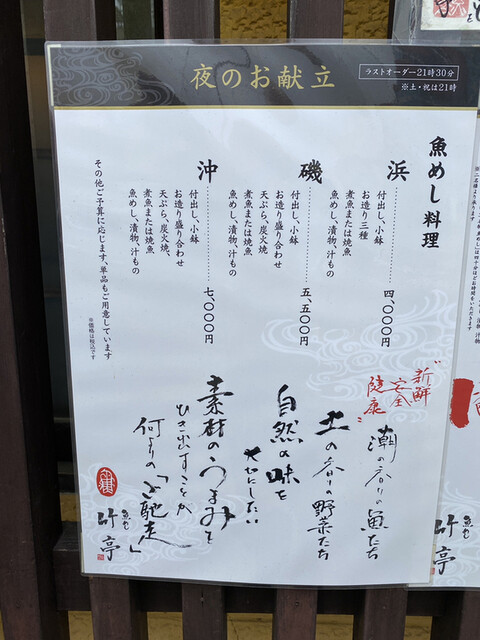 夜のお献立
ラストオーダー21時30分
※土・祝は21時
魚めし料理
浜………四、〇〇〇円
付出し、小鉢
お造り三種
煮魚または焼魚
魚めし、漬物、汁もの
磯………五、五〇〇円
付出し、小鉢
お造り盛り合わせ
天ぷら、炭火焼、
煮魚または焼魚
魚めし、漬物、汁もの
沖………七、〇〇〇円
付出し、小鉢
お造り盛り合わせ
天ぷら、炭火焼、
煮魚または焼魚
魚めし、漬物、汁もの
その他ご予算に応じます、単品もご用意しています
※価格は税込です
"新鮮
安全
健康"
潮の香りの魚たち
土の香りの野菜たち
自然の味を
大切にしたい
素材のうまみを
ひき出すことが
何よりの「ご馳走」
魚も
竹亭